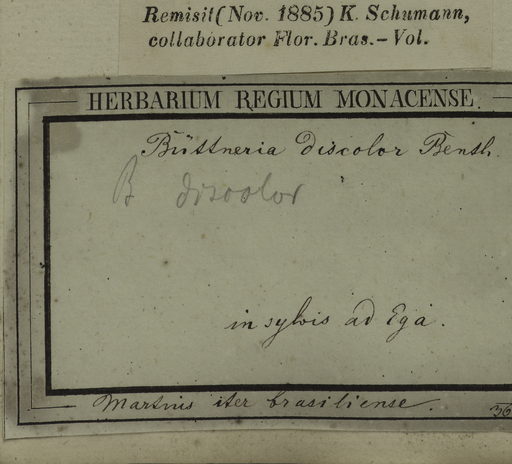 Remisit (Nov. 1885) K. Schumann,
collaborator Flor. Bras. – Vol.
HERBARIUM REGIUM MONACENSE.
Büttneria discolor Benth.
B discolor
in sylvis ad Ega.
Martius iter brasiliense.
36